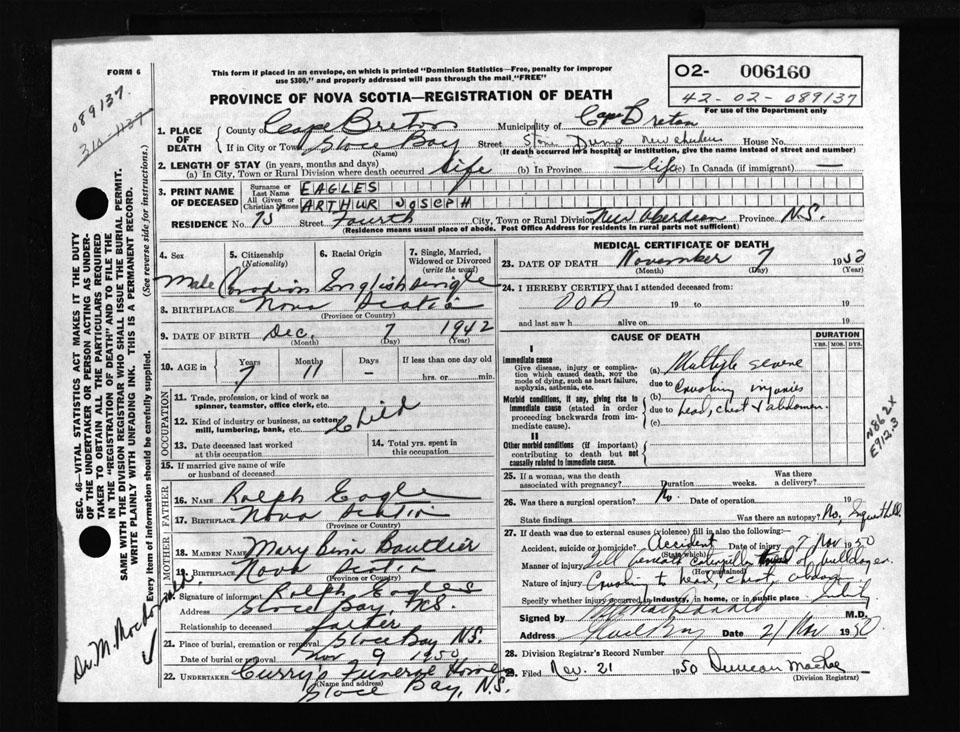 FORM 6
This form if placed in an envelope, on which is printed "Dominion Statistics—Free, penalty for improper
use $300," and properly addressed will pass through the mail "FREE"
O2- 006160
42-02-089137
For use of the Department only
PROVINCE OF NOVA SCOTIA—REGISTRATION OF DEATH
089137
310-1137
SEC. 46—VITAL STATISTICS ACT MAKES IT THE DUTY
OF THE UNDERTAKER OR PERSON ACTING AS UNDER-
TAKER TO OBTAIN ALL THE PARTICULARS REQUIRED
IN THE "REGISTRATION OF DEATH" AND TO FILE THE
SAME WITH THE DIVISION REGISTRAR WHO SHALL ISSUE THE BURIAL PERMIT.
WRITE PLAINLY WITH UNFADING INK. THIS IS A PERMANENT RECORD.
Every item of information should be carefully supplied. (See reverse side for instructions.)
1. PLACE OF DEATH
County of Cape Breton Municipality of Cape Breton
If in City or Town Glace Bay Street House No.
(Name) (If death occurred in a hospital or institution, give the name instead of street and number)
2. LENGTH OF STAY (in years, months and days)
(a) In City, Town or Rural Division where death occurred life (b) In Province life (c) In Canada (if immigrant) —
3. PRINT NAME OF DECEASED
Surname or Last Name EAGLES
All Given or Christian Names ARTHUR JOSEPH
RESIDENCE No. 75 Street Fourth City, Town or Rural Division New Aberdeen Province N.S.
(Residence means usual place of abode. Post Office Address for residents in rural parts not sufficient)
4. Sex Male
5. Citizenship (Nationality) Canadian
6. Racial Origin English
7. Single, Married, Widowed or Divorced (write the word) single
8. BIRTHPLACE Nova Scotia
(Province or Country)
9. DATE OF BIRTH Dec. 7 1942
(Month) (Day) (Year)
10. AGE in Years Months Days If less than one day old
7 11 – hrs. or min.
OCCUPATION
11. Trade, profession, or kind of work as
spinner, teamster, office clerk, etc.
12. Kind of industry or business, as cotton
mill, lumbering, bank, etc. Child
13. Date deceased last worked
at this occupation
14. Total yrs. spent in
this occupation
15. If married give name of wife
or husband of deceased
FATHER
16. NAME Ralph Eagle
17. BIRTHPLACE Nova Scotia
(Province or Country)
MOTHER
18. MAIDEN NAME Mary Bautlier
19. BIRTHPLACE Nova Scotia
(Province or Country)
20. Signature of informant Ralph Eagles
Address Glace Bay, N.S.
Relationship to deceased father
21. Place of burial, cremation or removal Glace Bay N.S.
Date of burial or removal Nov 9 1950
22. UNDERTAKER Curry's Funeral Home
(Name and address)
Glace Bay, N.S.
Dr. M. MacDonald
MEDICAL CERTIFICATE OF DEATH
23. DATE OF DEATH November 7 1950
(Month) (Day) (Year)
24. I HEREBY CERTIFY that I attended deceased from:
DOA 19 to 19
and last saw h alive on 19
CAUSE OF DEATH DURATION
YRS. MOS. DYS.
I
Immediate cause
Give disease, injury or complica-
tion which caused death, NOT the
mode of dying, such as heart failure,
asphyxia, asthenia, etc.
Morbid conditions, if any, giving rise to
immediate cause (stated in order
proceeding backwards from im-
mediate cause).
II
Other morbid conditions (if important)
contributing to death but not
causally related to immediate cause.
(a) Multiple severe
due to
(b) Crushing injuries
due to head, chest & abdomen.
(c)
N862X
E912.3
25. If a woman, was the death
associated with pregnancy? Duration weeks. Was there a delivery?
26. Was there a surgical operation? No Date of operation 19
State findings Was there an autopsy? No,
27. If death was due to external causes (violence) fill in also the following:
Accident, suicide or homicide? Accident Date of injury 7 Nov 1950
(State which)
Manner of injury Fell beneath caterpillar tread of bulldozer
(How sustained)
Nature of injury Crushing to head, chest, abdom.
Specify whether injury occurred in industry, in home, or in public place
Signed by M.D.
Address Glace Bay Date 21 Nov 1950
28. Division Registrar's Record Number
29. Filed Nov. 21 1950 Duncan MacRae
(Division Registrar)